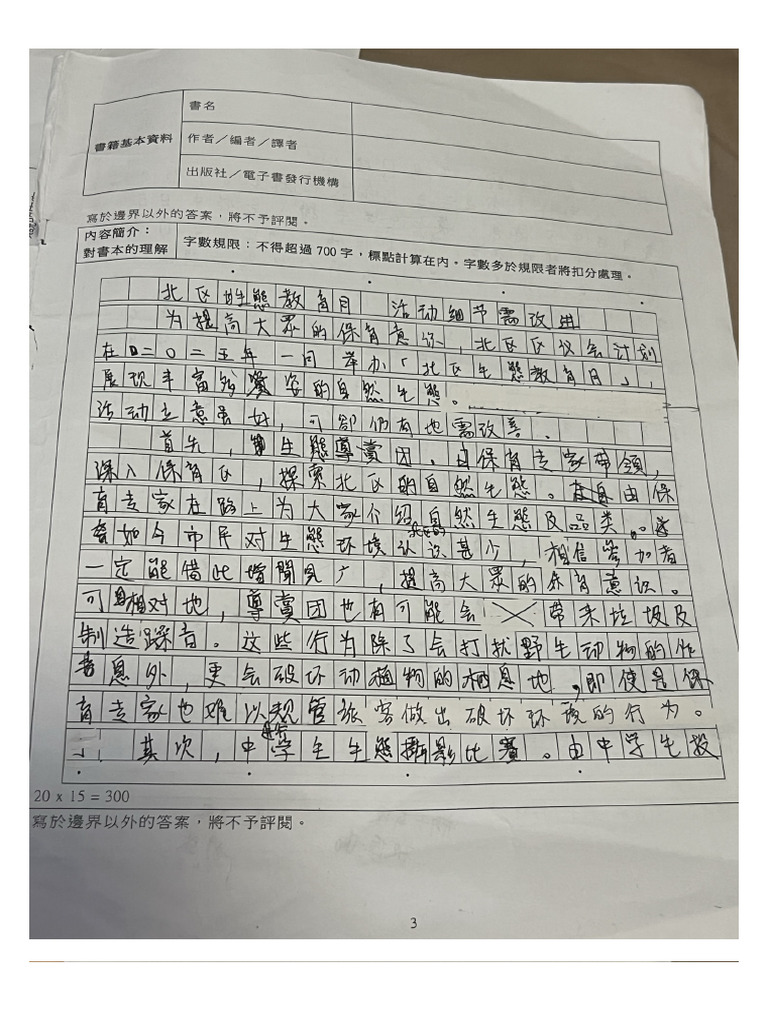 書籍基本資料
書名
作者／編者／譯者
出版社／電子書發行機構
寫於邊界以外的答案，將不予評閱。
內容簡介：
對書本的理解
字數規限：不得超過 700 字，標點計算在內。字數多於規限者將扣分處理。
北区生態教育月 活动細节需改進
为提高大眾的保育意识，北区区议会计划
在二〇二五年一同举办「北区生態教育月」，
展现丰富多姿的自然生態。
活动立意虽好，可卻仍有地需改善。
首先，生態導賞团，由保育专家带領，
深入保育区，探索北区的自然生態。由保
育专家在路上为大家介紹自然生態及品类。
如今市民对生態环境的认识甚少，相信参加者
一定能借此增聞見广，提高大眾的保育意识。
可相对地，導賞团也有可能会带来垃圾及
制造躁音。这些行为除了会打扰野生动物的作
息外，更会破坏动植物的栖息地，即使是保
育专家也难以規管旅客做出破坏环境的行为。
其次，中学生進行生態攝影比賽。由中学生投
20 x 15 = 300
寫於邊界以外的答案，將不予評閱。
3